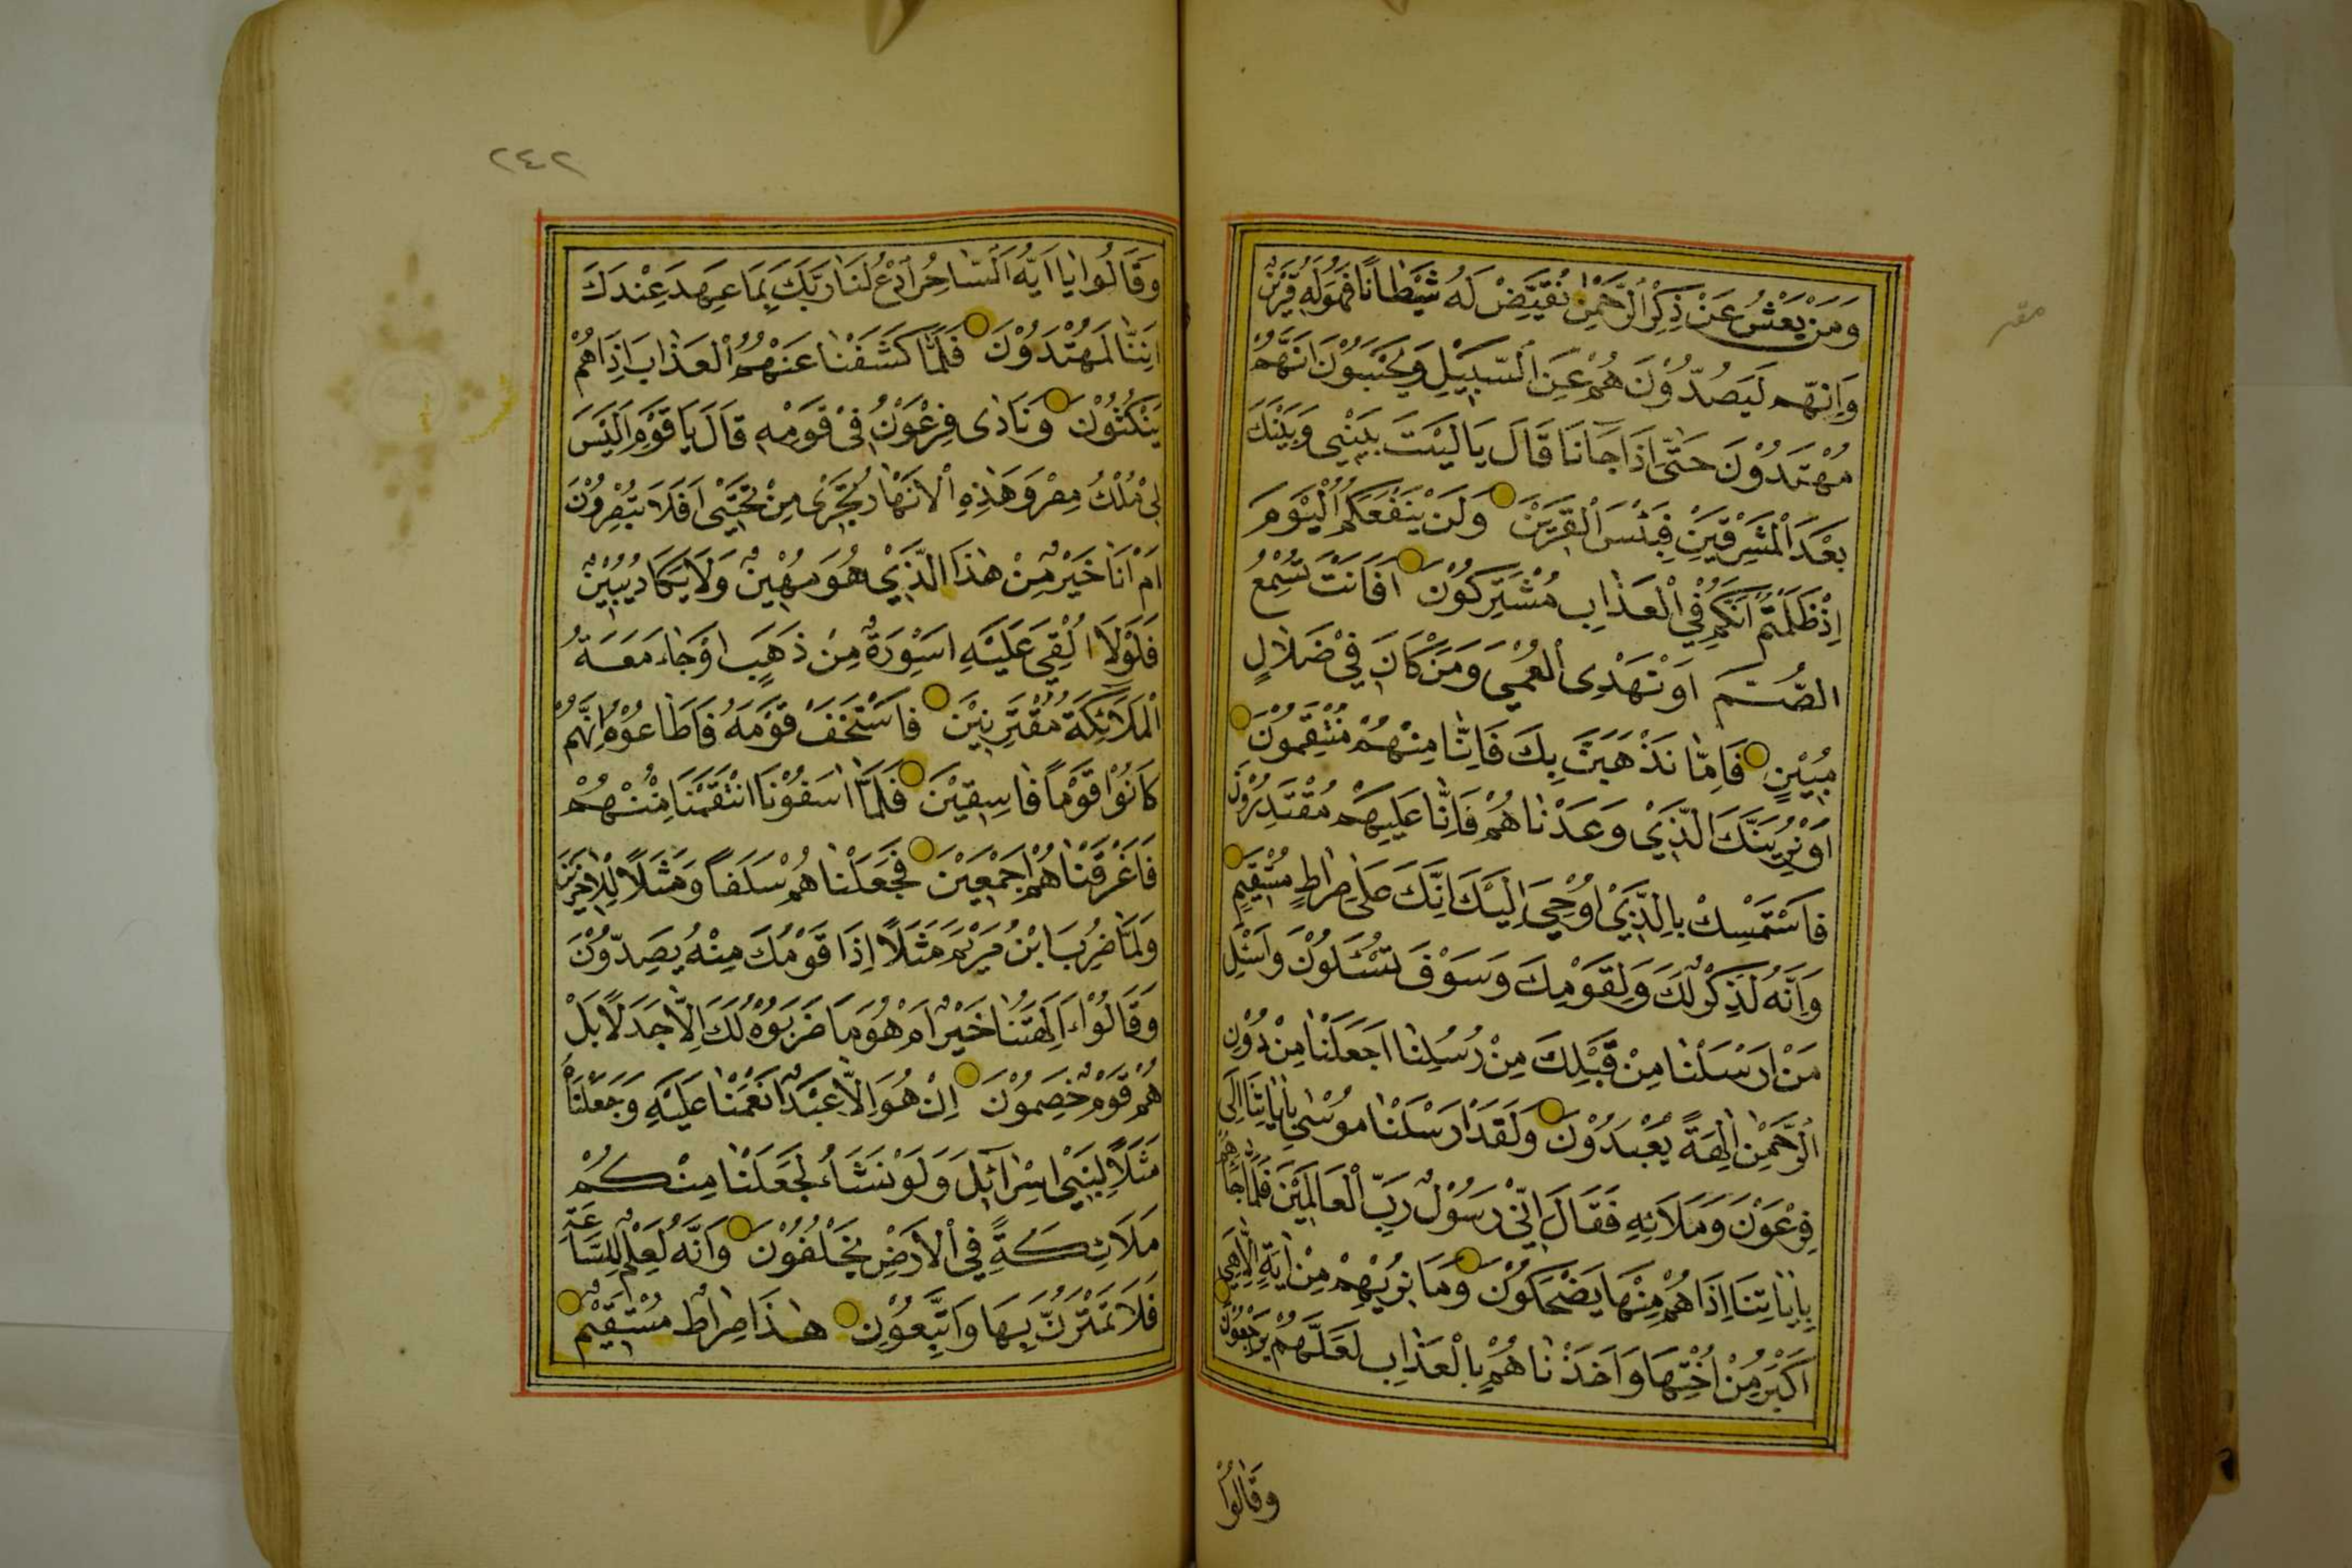 وَمَنْ يَعْشُ عَنْ ذِكْرِ الرَّحْمٰنِ نُقَيِّضْ لَهُ شَيْطَانًا فَهُوَ لَهُ قَرِيْنٌ
وَاِنَّهُمْ لَيَصُدُّوْنَ هُمْ عَنِ السَّبِيْلِ وَيَحْسَبُوْنَ اَنَّهُمْ
مُهْتَدُوْنَ حَتّٰى اِذَا جَآنَا قَالَ يَا لَيْتَ بَيْنِيْ وَبَيْنَكَ
بُعْدَ الْمَشْرِقَيْنِ فَبِئْسَ الْقَرِيْنُ وَلَنْ يَنْفَعَكُمُ الْيَوْمَ
اِذْ ظَلَمْتُمْ اَنَّكُمْ فِي الْعَذَابِ مُشْتَرِكُوْنَ اَفَاَنْتَ تُسْمِعُ
الصُّمَّ اَوْ تَهْدِى الْعُمْيَ وَمَنْ كَانَ فِيْ ضَلَالٍ
مُبِيْنٍ فَاِمَّا نَذْهَبَنَّ بِكَ فَاِنَّا مِنْهُمْ مُنْتَقِمُوْنَ
اَوْ نُرِيَنَّكَ الَّذِيْ وَعَدْنَاهُمْ فَاِنَّا عَلَيْهِمْ مُقْتَدِرُوْنَ
فَاسْتَمْسِكْ بِالَّذِيْ اُوْحِيَ اِلَيْكَ اِنَّكَ عَلٰى صِرَاطٍ مُسْتَقِيْمٍ
وَاِنَّهُ لَذِكْرٌ لَكَ وَلِقَوْمِكَ وَسَوْفَ تُسْئَلُوْنَ وَاسْئَلْ
مَنْ اَرْسَلْنَا مِنْ قَبْلِكَ مِنْ رُسُلِنَا اَجَعَلْنَا مِنْ دُوْنِ
الرَّحْمٰنِ اٰلِهَةً يُعْبَدُوْنَ وَلَقَدْ اَرْسَلْنَا مُوْسٰى بِاٰيَاتِنَا اِلٰى
فِرْعَوْنَ وَمَلَائِهِ فَقَالَ اِنِّيْ رَسُوْلُ رَبِّ الْعَالَمِيْنَ فَلَمَّا جَاءَهُمْ
بِاٰيَاتِنَا اِذَا هُمْ مِنْهَا يَضْحَكُوْنَ وَمَا نُرِيْهِمْ مِنْ اٰيَةٍ اِلَّا هِيَ
اَكْبَرُ مِنْ اُخْتِهَا وَاَخَذْنَاهُمْ بِالْعَذَابِ لَعَلَّهُمْ يَرْجِعُوْنَ
وَقَالُوْا
٢٤٢
وَقَالُوْا يَا اَيُّهَ السَّاحِرُ ادْعُ لَنَا رَبَّكَ بِمَا عَهِدَ عِنْدَكَ
اِنَّنَا لَمُهْتَدُوْنَ فَلَمَّا كَشَفْنَا عَنْهُمُ الْعَذَابَ اِذَا هُمْ
يَنْكُثُوْنَ وَنَادٰى فِرْعَوْنُ فِيْ قَوْمِهِ قَالَ يَا قَوْمِ اَلَيْسَ
لِيْ مُلْكُ مِصْرَ وَهٰذِهِ الْاَنْهَارُ تَجْرِىْ مِنْ تَحْتِيْ اَفَلَا تُبْصِرُوْنَ
اَمْ اَنَا خَيْرٌ مِنْ هٰذَا الَّذِيْ هُوَ مَهِيْنٌ وَلَا يَكَادُ يُبِيْنُ
فَلَوْلَا اُلْقِيَ عَلَيْهِ اَسْوِرَةٌ مِنْ ذَهَبٍ اَوْ جَاءَ مَعَهُ
الْمَلَائِكَةُ مُقْتَرِنِيْنَ فَاسْتَخَفَّ قَوْمَهُ فَاَطَاعُوْهُ اِنَّهُمْ
كَانُوْا قَوْمًا فَاسِقِيْنَ فَلَمَّا اٰسَفُوْنَا انْتَقَمْنَا مِنْهُمْ
فَاَغْرَقْنَاهُمْ اَجْمَعِيْنَ فَجَعَلْنَاهُمْ سَلَفًا وَمَثَلًا لِلْاٰخِرِيْنَ
وَلَمَّا ضُرِبَ ابْنُ مَرْيَمَ مَثَلًا اِذَا قَوْمُكَ مِنْهُ يَصِدُّوْنَ
وَقَالُوْا ءَاٰلِهَتُنَا خَيْرٌ اَمْ هُوَ مَا ضَرَبُوْهُ لَكَ اِلَّا جَدَلًا بَلْ
هُمْ قَوْمٌ خَصِمُوْنَ اِنْ هُوَ اِلَّا عَبْدٌ اَنْعَمْنَا عَلَيْهِ وَجَعَلْنَاهُ
مَثَلًا لِبَنِيْ اِسْرَآئِلَ وَلَوْ نَشَاءُ لَجَعَلْنَا مِنْكُمْ
مَلَائِكَةً فِي الْاَرْضِ يَخْلُفُوْنَ وَاِنَّهُ لَعِلْمٌ لِلسَّاعَةِ
فَلَا تَمْتَرُنَّ بِهَا وَاتَّبِعُوْنِ هٰذَا صِرَاطٌ مُسْتَقِيْمٌ